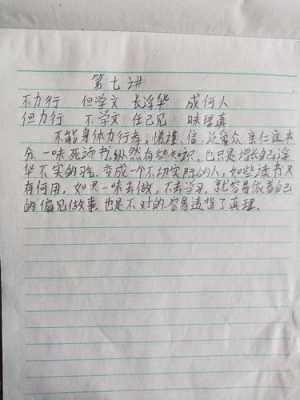 第七讲
不力行 但学文 长浮华 成何人
但力行 不学文 任己见 昧理真
不能身体力行孝,悌,谨,信,泛爱众,亲仁这本
分,一味死读书,纵然有些知识,也只是增长自己浮
华不实的习,变成一个不切实际的人,如此读书又
有何用,如果一味去做,不去学习,就容易依着自己
的偏见做事,也是不对的,容易违背了真理.